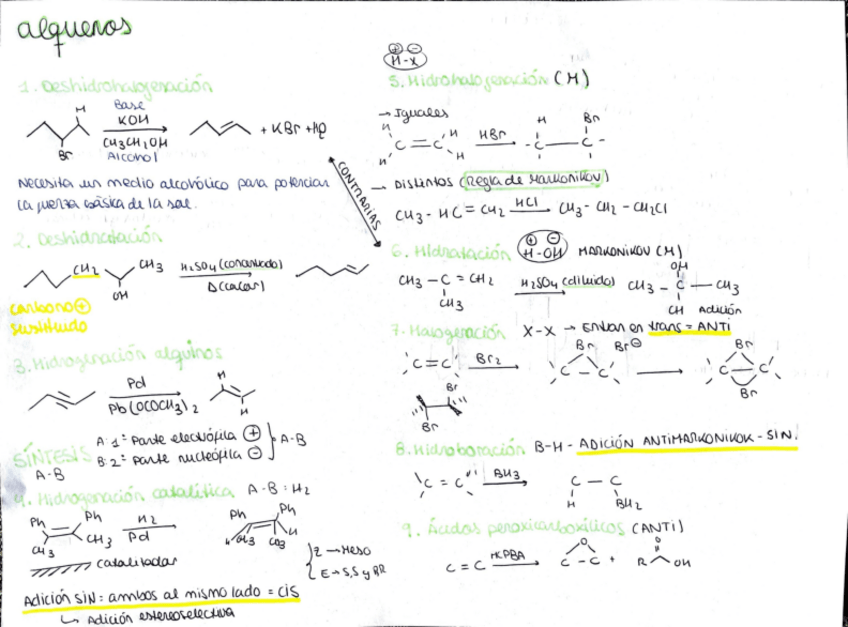 alquenos
1. Deshidrohalogenación
H
Base
KOH
CH3CH2OH
Alcohol
Br
+ KBr + H2O
Necesita un medio alcohólico para potenciar
la fuerza básica de la sal.
CONTRARIAS
2. Deshidratación
CH2
CH3
OH
H2SO4 (concentrado)
Δ (calor)
carbono +
sustituido
3. Hidrogenación alquinos
Pd
Pb(OCOCH3)2
H
H
SÍNTESIS
A-B
A: 1º Parte electrófila +
B: 2º Parte nucleófila -
A-B
4. Hidrogenación catalítica A-B: H2
Ph
Ph
CH3
CH3
H2
Pd
Ph
Ph
H
CH3
H
catalizador
Z → Meso
E → S,S y RR
Adición SIN: ambos al mismo lado = cis
↳ Adición estereoselectiva
+ -
H-X
5. Hidrohalogenación (M)
→ Iguales
H
H
C = C
H
H
HBr
H
Br
- C — C -
→ Distintos (Regla de Markonikov)
CH3 - HC = CH2
HCl
CH3 - CH2 - CH2Cl
6. Hidratación
+ -
H-OH
MARKONIKOV (M)
CH3 - C = CH2
CH3
H2SO4 (diluido)
OH
CH3 - C — CH3
CH
Adición
7. Halogenación X-X → Entran en trans = ANTI
C = C
Br2
Br
Br⊖
C - C
Br
C - C
Br
Br
Br
8. Hidroboración B-H - ADICIÓN ANTIMARKONIKOK - SIN.
C = C
BH3
C - C
H
BH2
9. Ácidos peroxicarboxílicos (ANTI)
C = C
MCPBA
O
C - C
+
O
R
OH